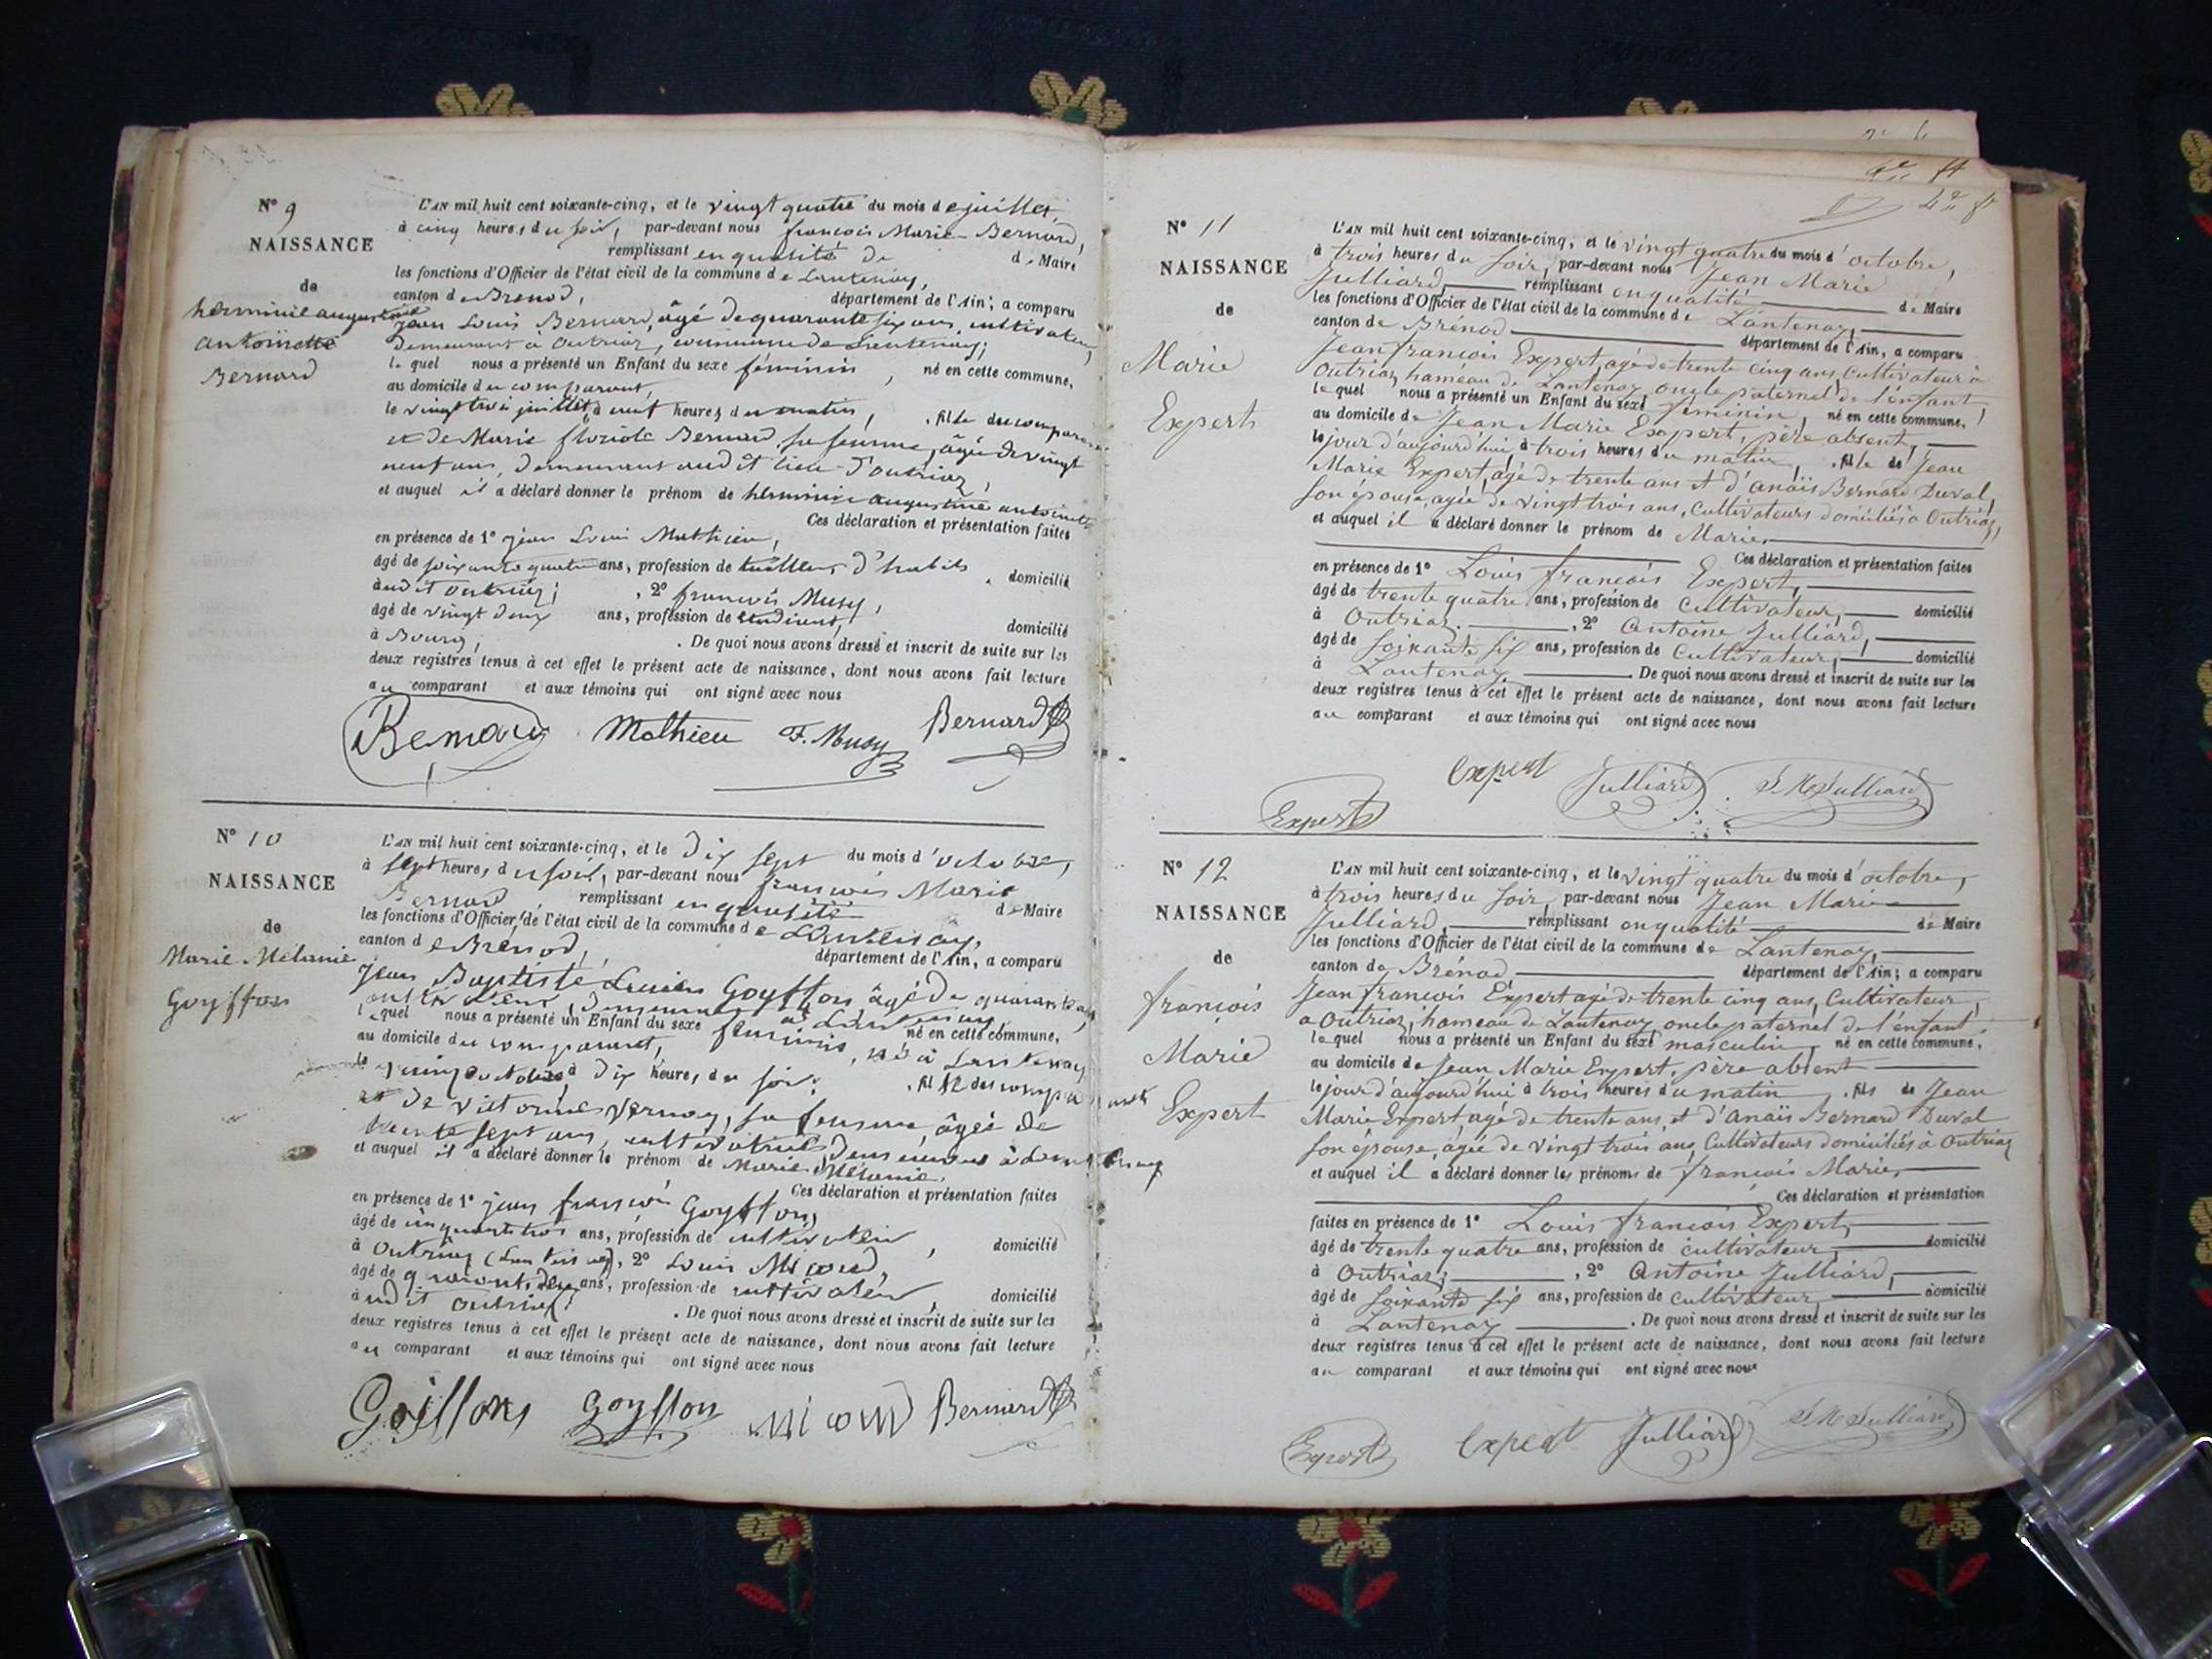 N° 9
NAISSANCE
de
herminie augustine
antoinette
Bernard
L'AN mil huit cent soixante-cinq, et le vingt quatre du mois de juillet,
à cinq heures du soir, par-devant nous françois Marie Bernard,
remplissant en qualité de de Maire
les fonctions d'Officier de l'état civil de la commune de Lantenay,
canton de Brenod, département de l'Ain; a comparu
Jean Louis Bernard, âgé de quarante six ans, cultivateur,
demeurant à Outriaz, commune de Lantenay;
lequel nous a présenté un Enfant du sexe féminin, né en cette commune,
au domicile du comparant,
le vingt trois juillet, à neuf heures du matin, fille du comparant
et de Marie floriole Bernard sa femme, âgée de vingt
neuf ans, demeurant audit lieu d'outriaz,
et auquel il a déclaré donner le prénom de herminie augustine antoinette
Ces déclaration et présentation faites
en présence de 1° jean Louis Mathieu,
âgé de soixante quatre ans, profession de tailleur d'habits, domicilié
audit outriaz; , 2° françois Musy,
âgé de vingt deux ans, profession de domicilié
à Bourg, . De quoi nous avons dressé et inscrit de suite sur les
deux registres tenus à cet effet le présent acte de naissance, dont nous avons fait lecture
au comparant et aux témoins qui ont signé avec nous
Bernard Mathieu F. Musy Bernard
N° 10
NAISSANCE
de
Marie Mélanie
Goyffon
L'AN mil huit cent soixante-cinq, et le dix sept du mois d'octobre,
à sept heures, du soir, par-devant nous françois Marie
Bernard remplissant en qualité de Maire
les fonctions d'Officier de l'état civil de la commune de Lantenay,
canton de Brénod, département de l'Ain, a comparu
Jean Baptiste Lucien Goyffon âgé de quarante ans
cultivateur, demeurant à Lantenay,
lequel nous a présenté un Enfant du sexe féminin, né à Lantenay né en cette commune,
au domicile du comparant,
le quinze octobre à dix heures, du soir; , fille du comparant
et de Victorine Vernay, sa femme, âgée de
trente sept ans, cultivatrice demeurant à Lantenay
et auquel il a déclaré donner le prénom de Marie Mélanie.
Ces déclaration et présentation faites
en présence de 1° jean françois Goyffon,
âgé de cinquante trois ans, profession de cultivateur, domicilié
à Outriaz (Lantenay), 2° Louis Micoud,
âgé de quarante deux ans, profession de cultivateur, domicilié
audit outriaz; . De quoi nous avons dressé et inscrit de suite sur les
deux registres tenus à cet effet le présent acte de naissance, dont nous avons fait lecture
au comparant et aux témoins qui ont signé avec nous
Goiffon Goyffon Micoud Bernard
N° 11
NAISSANCE
de
Marie
Expert
L'AN mil huit cent soixante-cinq, et le vingt quatre du mois d'octobre,
à trois heures du soir, par-devant nous Jean Marie
Julliard, remplissant en qualité de Maire
les fonctions d'Officier de l'état civil de la commune de Lantenay,
canton de Brénod département de l'Ain, a comparu
Jean françois Expert, agé de trente cinq ans, Cultivateur à
Outriaz, hameau de Lantenay, oncle paternel de l'enfant
lequel nous a présenté un Enfant du sexe féminin, né en cette commune,
au domicile de Jean Marie Expert, père absent,
le jour d'aujourd'hui, à trois heures du matin, fille de Jean
Marie Expert, agé de trente ans et d'anaïs Bernard Duval,
son épouse, agée de vingt trois ans, Cultivateurs domiciliés à Outriaz,
et auquel il a déclaré donner le prénom de Marie.
Ces déclaration et présentation faites
en présence de 1° Louis françois Expert,
âgé de trente quatre ans, profession de Cultivateur, domicilié
à Outriaz. , 2° Antoine Julliard,
âgé de soixante six ans, profession de Cultivateur, domicilié
à Lantenay . De quoi nous avons dressé et inscrit de suite sur les
deux registres tenus à cet effet le présent acte de naissance, dont nous avons fait lecture
au comparant et aux témoins qui ont signé avec nous
Expert expert Julliard J. M. Julliard
N° 12
NAISSANCE
de
françois
Marie
Expert
L'AN mil huit cent soixante-cinq, et le vingt quatre du mois d'octobre,
à trois heures du soir, par-devant nous Jean Marie
Julliard, remplissant en qualité de Maire
les fonctions d'Officier de l'état civil de la commune de Lantenay,
canton de Brénod département de l'Ain; a comparu
Jean françois Expert agé de trente cinq ans, Cultivateur,
a Outriaz, hameau de Lantenay, oncle paternel de l'enfant.
lequel nous a présenté un Enfant du sexe masculin, né en cette commune,
au domicile de Jean Marie Expert, père absent
le jour d'aujourd'hui à trois heures du matin , fils de Jean
Marie Expert, agé de trente ans, et d'Anaïs Bernard Duval
son épouse, agée de vingt trois ans, Cultivateurs domiciliés à Outriaz
et auquel il a déclaré donner les prénoms de françois Marie,
Ces déclaration et présentation
faites en présence de 1° Louis françois Expert,
âgé de trente quatre ans, profession de cultivateur, domicilié
à Outriaz; , 2° Antoine Julliard,
âgé de soixante six ans, profession de cultivateur, domicilié
à Lantenay . De quoi nous avons dressé et inscrit de suite sur les
deux registres tenus à cet effet le présent acte de naissance, dont nous avons fait lecture
au comparant et aux témoins qui ont signé avec nous
Expert expert Julliard J M Julliard